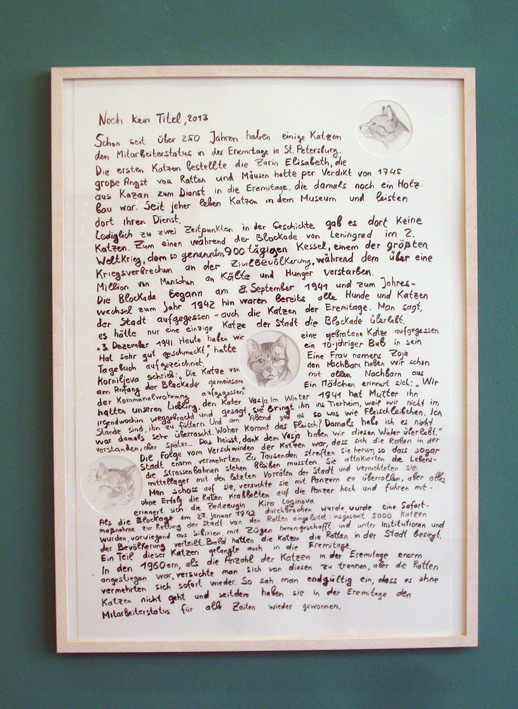 Noch kein Titel, 2013
Schon seit über 250 Jahren haben einige Katzen
den Mitarbeiterstatus in der Eremitage in St. Petersburg.
Die ersten Katzen bestellte die Zarin Elisabeth, die
große Angst vor Ratten und Mäusen hatte per Verdikt von 1745
aus Kazan zum Dienst in die Eremitage, die damals noch ein Holz-
bau war. Seit jeher leben Katzen in dem Museum und leisten
dort ihren Dienst.
Lediglich zu zwei Zeitpunkten in der Geschichte gab es dort keine
Katzen. Zum einen während der Blockade von Leningrad im 2.
Weltkrieg, dem so genannten 900 tägigen Kessel, einem der größten
Kriegsverbrechen an der Zivilbevölkerung, während dem über eine
Million von Menschen an Kälte und Hunger verstarben.
Die Blockade begann am 8. September 1941 und zum Jahres-
wechsel zum Jahr 1942 hin waren bereits alle Hunde und Katzen
der Stadt aufgegessen - auch die Katzen der Eremitage. Man sagt,
es hätte nur eine einzige Katze der Stadt die Blockade überlebt.
"3. Dezember 1941. Heute haben wir eine gebratene Katze aufgegessen
Hat sehr gut geschmeckt", hatte ein 10-jähriger Bub in sein
Tagebuch aufgezeichnet. Eine Frau namens Zoja
Korniljeva schrieb: "Die Katze von den Nachbarn haben wir schon
am Anfang der Blockade gemeinsam mit allen Nachbarn aus
der Kommunalwohnung aufgegessen" Ein Mädchen erinnert sich: "Wir
hatten unseren Liebling den Kater Vasja. Im Winter 1941 hat Mutter ihn
irgendwohin weggebracht und gesagt, sie bringt ihn ins Tierheim, weil wir nicht im
Stande sind ihn zu füttern. Und am Abend gab es so was wie Fleischleibchen. Ich
war damals sehr überrascht. Woher kommt das Fleisch? Damals habe ich es nicht
verstanden, aber später... Das heisst, dank dem Vasja haben wir diesen Winter überlebt."
Die Folge vom Verschwinden der Katzen war, dass sich die Ratten in der
Stadt enorm vermehrten. Zu Tausenden streiften sie herum, so dass sogar
die Strassenbahnen stehen bleiben mussten. Sie attakierten die Lebens-
mittellager mit den letzten Vorräten der Stadt und vernichteten sie.
Man schoss auf sie, versuchte sie mit Panzern zu überrollen, aber alles
ohne Erfolg die Ratten krabbelten auf die Panzer hoch und fuhren mit -
erinnert sich die Zeitzeugin Kira Loginova
Als die Blockade am 27. Januar 1943 durchbrochen wurde, wurde eine Sofort-
maßnahme zur Rettung der Stadt von den Ratten eingeleitet: insgesamt 5000 Katzen
wurden, vorwiegend aus Sibirien mit Zügen herangeschafft und unter Institutionen und
der Bevölkerung verteilt. Bald hatten die Katzen die Ratten in der Stadt besiegt.
Ein Teil dieser Katzen gelangte auch in die Eremitage.
In den 1960ern, als die Anzahl der Katzen in der Eremitage enorm
angestiegen war, versuchte man sich von diesen zu trennen, aber die Ratten
vermehrten sich sofort wieder. So sah man endgültig ein, dass es ohne
Katzen nicht geht und seitdem haben sie in der Eremitage den
Mitarbeiterstatus für alle Zeiten wieder gewonnen.